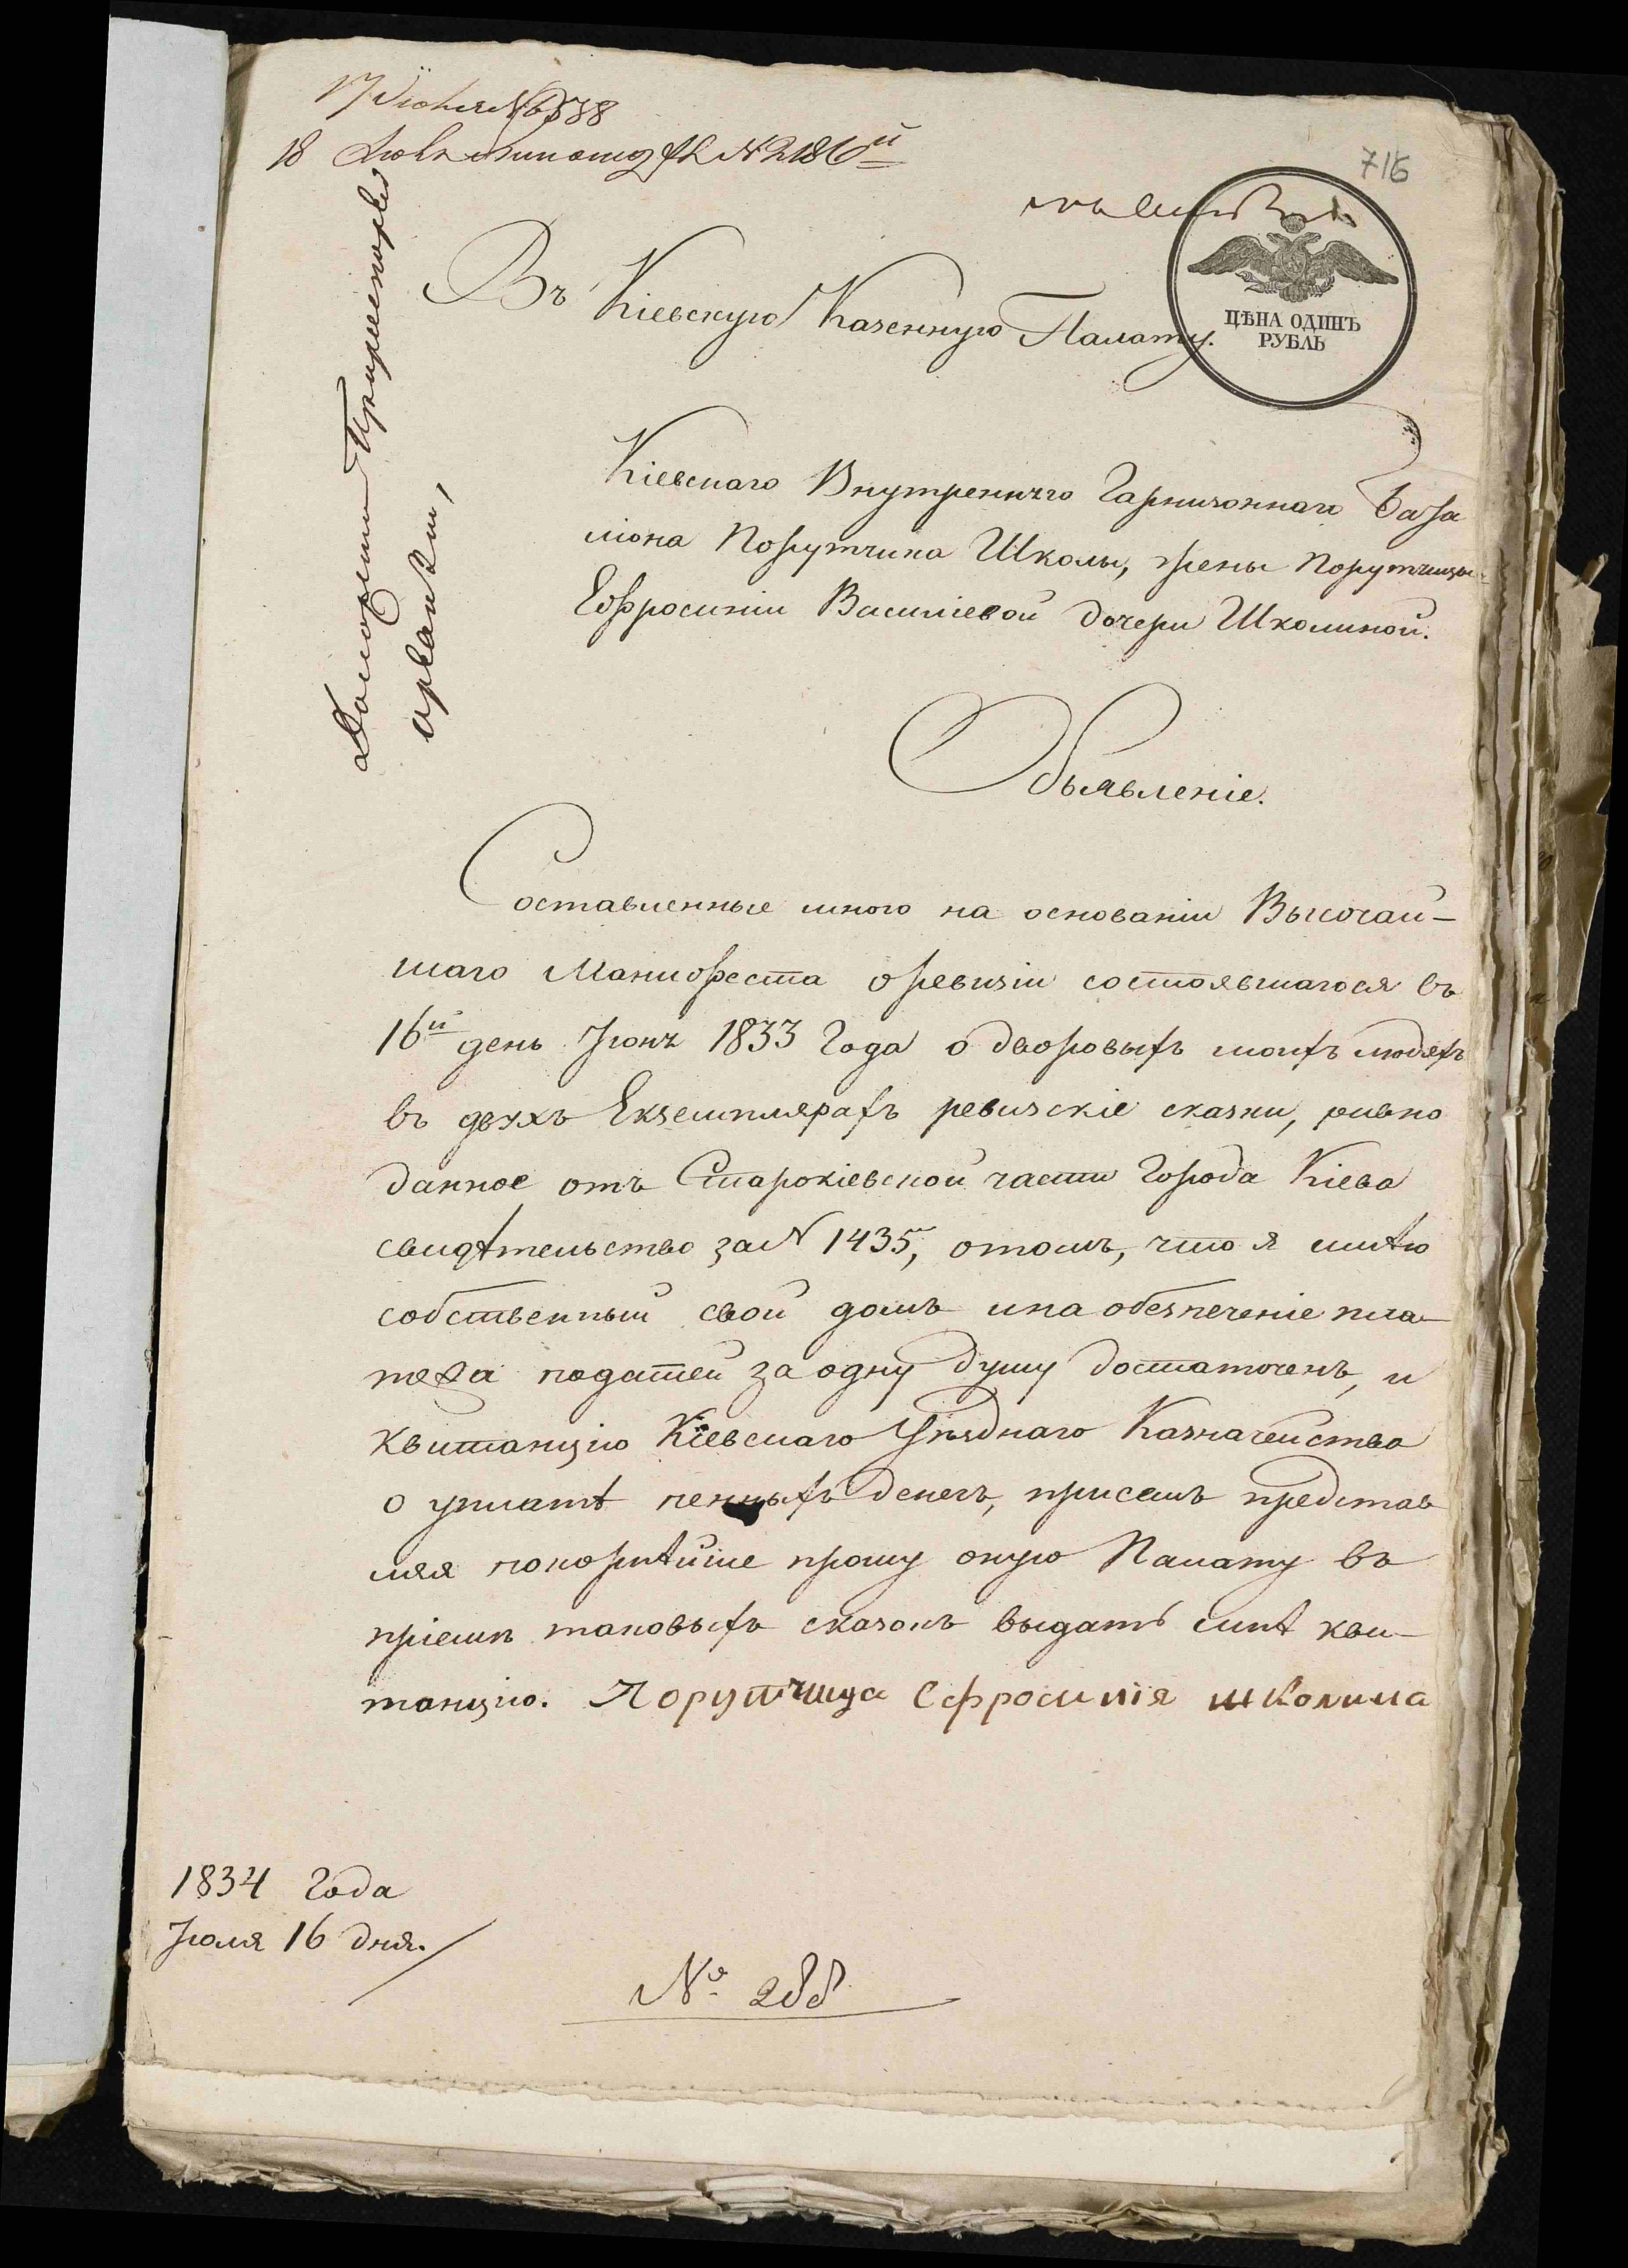 17 Июля № 6388
18
716
Въ Кіевскую Казенную Палату.
ЦѢНА ОДИНЪ
РУБЛЬ
Кіевскаго Внутренняго Гарнизоннаго Бата
ліона Порутчика Школы, жены Порутчицы
Ефросиніи Василіевой дочери Школиной.
Объявленіе.
Составленные мною на основаніи Высочай-
шаго Манифеста о ревизіи состоявшагося въ
16й день Іюня 1833 Года о дворовыхъ моихъ людяхъ
въ двухъ Екземплярахъ ревизскіе сказки, равно
данное отъ Старокіевской части Города Кіева
свидѣтельство за № 1435, о томъ, что я имѣю
собственный свой домъ и на обезпеченіе пла-
тежа податей за одну душу достаточенъ, и
квитанцію Кіевскаго Уѣзднаго Казначейства
о уплатѣ пенныхъ денегъ, присемъ представ
ляя покорнѣйше прошу оную Палату въ
пріемѣ таковыхъ сказокъ выдать мнѣ кви-
танцію. Порутчица Ефросинія школина
1834 Года
Іюля 16 дня.
№ 288